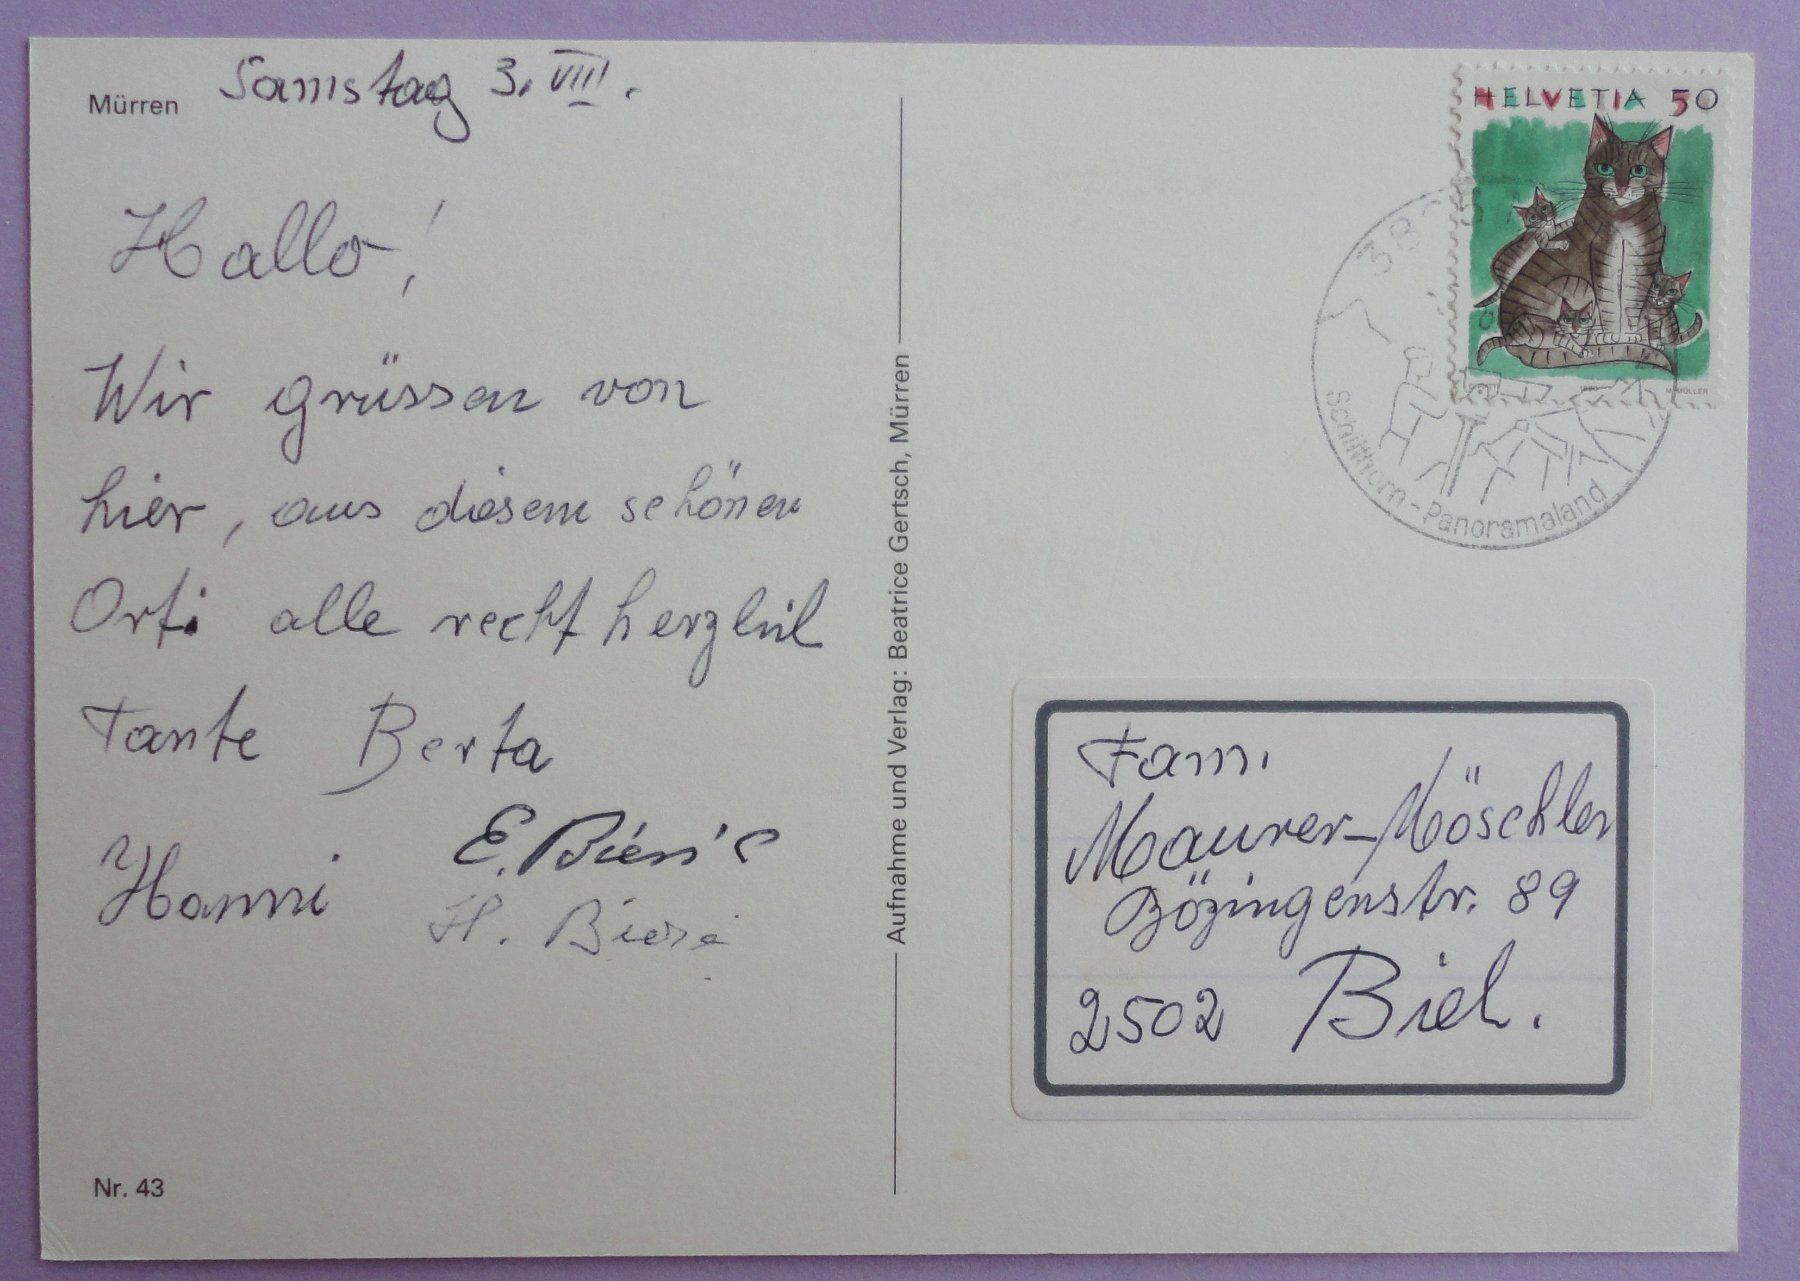 Mürren
Samstag 3. VIII.
Hallo!
Wir grüssen von
hier, aus diesem schönen
Ort alle recht herzlich
Tante Berta
Hanni
E. Bieri
H. Bieri
Nr. 43
Aufnahme und Verlag: Beatrice Gertsch, Mürren
HELVETIA 50
M. MÜLLER
38
Schilthorn-Panoramaland
Fam.
Maurer-Möschler
Bözingenstr. 89
2502 Biel.